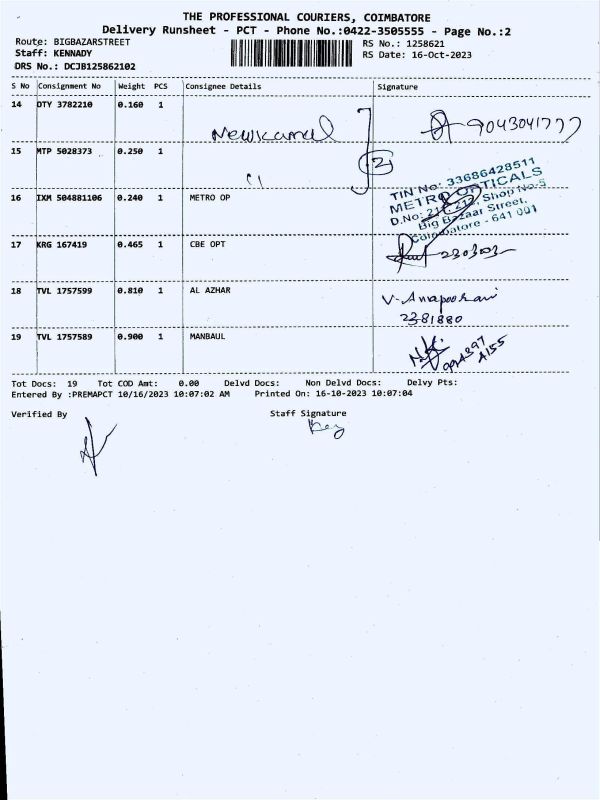 THE PROFESSIONAL COURIERS, COIMBATORE
Delivery Runsheet - PCT - Phone No.:0422-3505555 - Page No.:2
Route: BIGBAZARSTREET RS No.: 1258621
Staff: KENNADY RS Date: 16-Oct-2023
DRS No.: DCJB125862102
S No Consignment No Weight PCS Consignee Details Signature
14 DTY 3782210 0.160 1
Newkamal 9043041777
15 MTP 5028373 0.250 1
2
TIN No: 33686428511
16 IXM 504881106 0.240 1 METRO OP METRO OPTICALS
D.No: 211, 212, Shop No-5
Big Bazaar Street,
Coimbatore - 641 001
17 KRG 167419 0.465 1 CBE OPT
2303023
18 TVL 1757599 0.810 1 AL AZHAR
V. Annapoorani
2381880
19 TVL 1757589 0.900 1 MANBAUL
Tot Docs: 19 Tot COD Amt: 0.00 Delvd Docs: Non Delvd Docs: Delvy Pts:
Entered By :PREMAPCT 10/16/2023 10:07:02 AM Printed On: 16-10-2023 10:07:04
Verified By Staff Signature